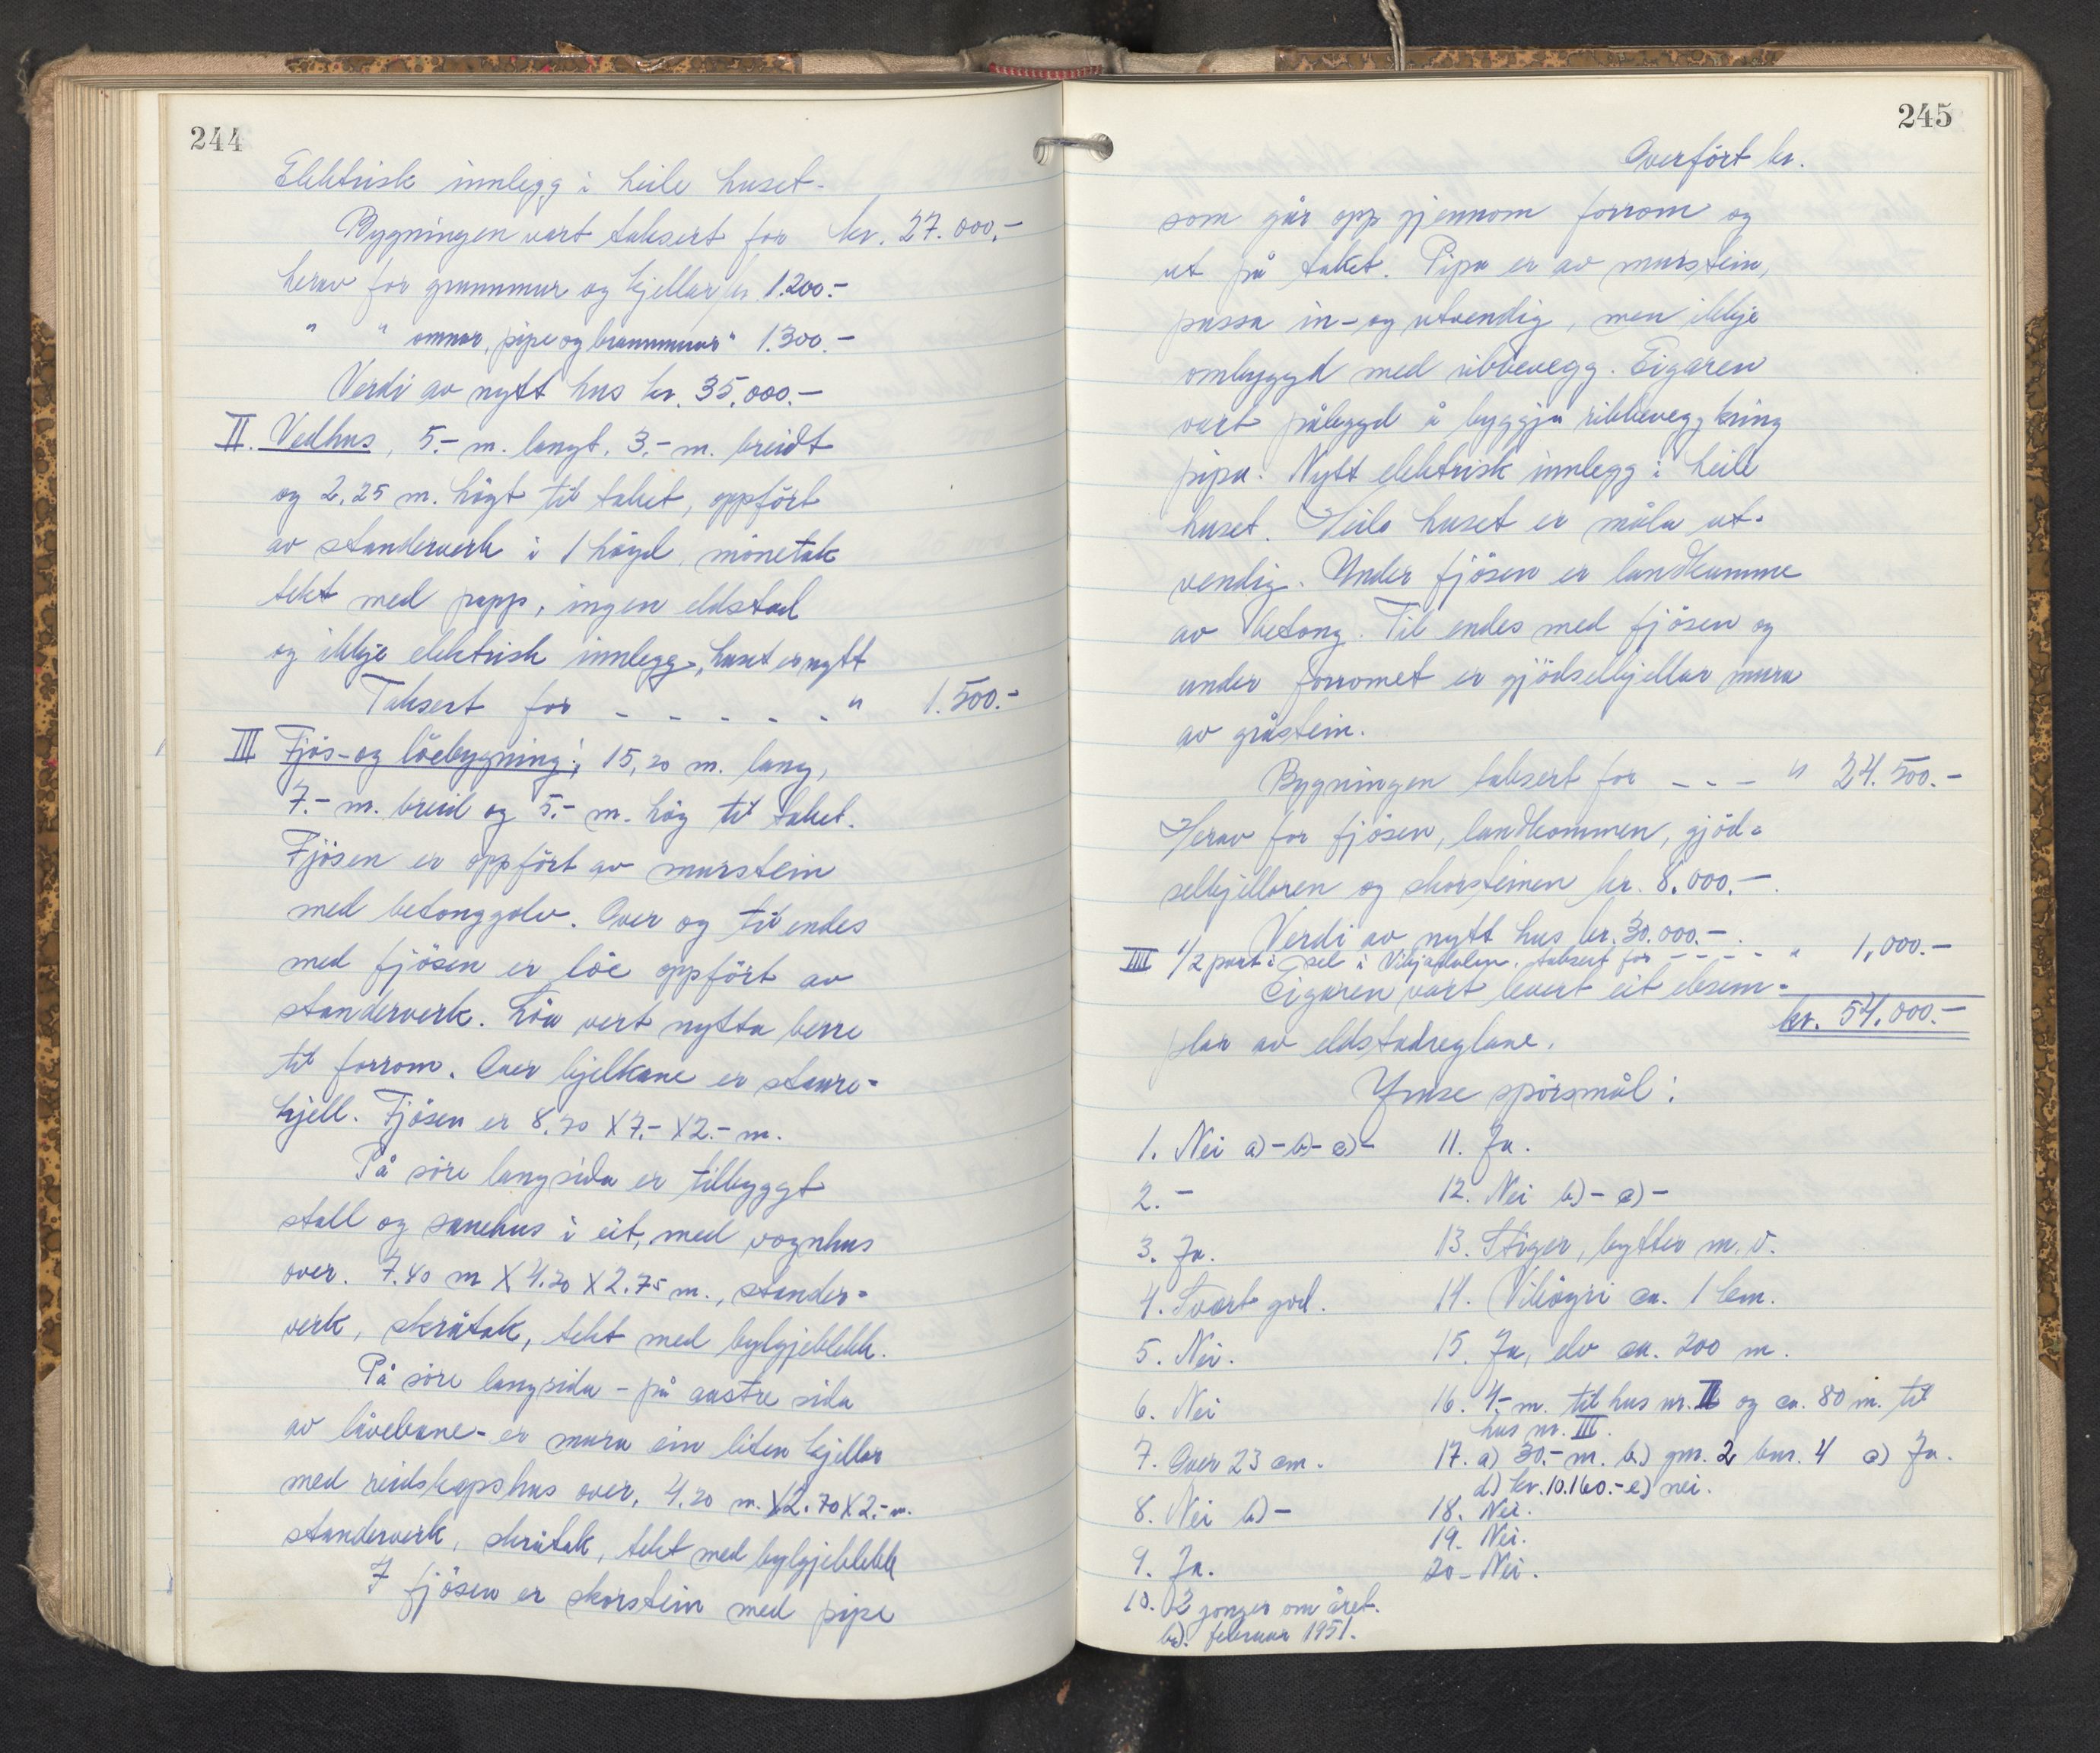 244
Elektrisk innlegg i heile huset.
Bygningen vart taksert for kr. 27.000.-
herav for grunnmur og kjellar kr. 1.200.-
" " omnar, pipe og brannmur " 1.300.-
Verdi av nytt hus kr. 35.000.-
II. Vedhus, 5.- m. langt. 3.- m. breidt
og 2.25 m. högt til taket, oppfört
av standerverk i 1 högd, mönetak
tekt med papp, ingen eldstad
og ikkje elektrisk innlegg, huset er nytt
Taksert for - - - - - " 1.500.-
III Fjös- og löebygning: 15,20 m. lang,
7.- m. breid og 5.- m. hög til taket.
Fjösen er oppfört av murstein
med betonggolv. Over og til endes
med fjösen er löe oppfört av
standerverk. Löa vert nytta berre
til forrom. Over bjelkane er staure-
hjell. Fjösen er 8.70 X 7.- X 2.- m.
På söre langsida er tilbyggt
stall og sauehus i eit, med vognhus
over. 7.40 m X 4.20 X 2.75 m., stander-
verk, skråtak, tekt med bylgjeblekk.
På söre langsida - på austre sida
av låvebrua - er mura ein liten kjellar
med reidskapshus over, 4.20 m. X 2.70 X 2.- m.
standerverk, skråtak, tekt med bylgjeblekk
I fjösen er skorstein med pipe
245
Overfört kr.
som går opp gjennom forrom og
ut på taket. Pipa er av murstein,
pussa in- og utvendig, men ikkje
ombyggd med ribbevegg. Eigaren
vart pålagd å byggja ribbevegg kring
pipa. Nytt elektrisk innlegg i heile
huset. Heile huset er måla ut-
vendig. Under fjösen er landkumme
av betong. Til endes med fjösen og
under forromet er gjödselkjellar mura
av gråstein.
Bygningen taksert for - - - " 24.500.-
Herav for fjösen, landkommen, gjöd-
selkjellaren og skorsteinen kr. 8.000.-
Verdi av nytt hus kr. 30.000.-
IIII 1/2 part i sel i Vikjadalen. taksert for - - - - " 1,000.-
Eigaren vart levert eit eksem-
kr. 54.000.-
plar av eldstadreglane.
Ymse spörsmål:
1. Nei a) - b) - c) -
2. -
3. Ja.
4. Svært god.
5. Nei.
6. Nei
7. Over 23 cm.
8. Nei b) -
9. Ja.
10. 2 gonger om året.
b). februar 1951.
11. Ja.
12. Nei b) - c) -
13. Stiger, bytter m. v.
14. Viköyri ca. 1 km.
15. Ja, elv ca. 200 m.
16. 4.- m. til hus nr. II og ca. 80 m. til
hus nr. III.
17. a) 30.- m. b) gnr. 2 bnr. 4 c) Ja.
d) kr. 10.160.- e) nei.
18. Nei.
19. Nei.
20 - Nei.